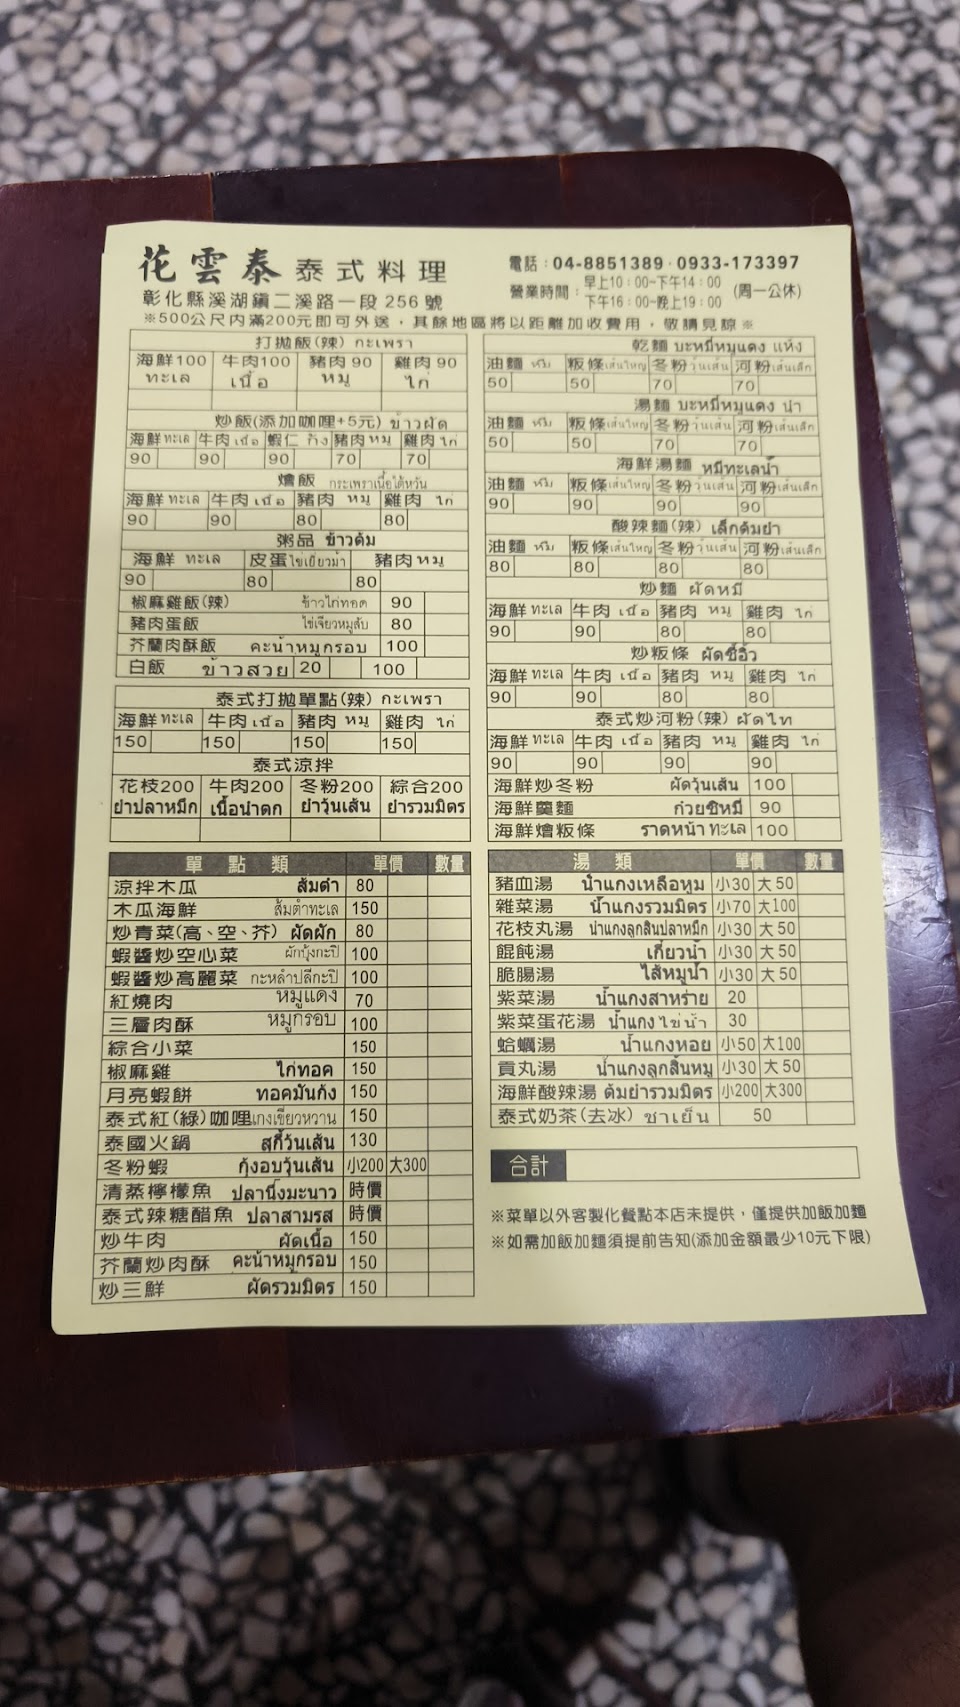 花雲泰 泰式料理
電話：04-8851389·0933-173397
彰化縣溪湖鎮二溪路一段256號
營業時間：早上10：00~下午14：00
下午16：00~晚上19：00
(周一公休)
※500公尺內滿200元即可外送，其餘地區將以距離加收費用，敬請見諒※
打拋飯(辣) กะเพรา
海鮮100 牛肉100 豬肉90 雞肉90
ทะเล เนื้อ หมู ไก่
炒飯(添加咖哩+5元) ข้าวผัด
海鮮 ทะเล 牛肉 เนื้อ 蝦仁 กุ้ง 豬肉 หมู 雞肉 ไก่
90 90 90 70 70
燴飯 กระเพราเนื้อไต้หวัน
海鮮 ทะเล 牛肉 เนื้อ 豬肉 หมู 雞肉 ไก่
90 90 80 80
粥品 ข้าวต้ม
海鮮 ทะเล 皮蛋 ไข่เยี่ยวม้า 豬肉 หมู
90 80 80
椒麻雞飯(辣) ข้าวไก่ทอด 90
豬肉蛋飯 ไข่เจียวหมูสับ 80
芥蘭肉酥飯 คะน้าหมูกรอบ 100
白飯 ข้าวสวย 20 100
泰式打拋單點(辣) กะเพรา
海鮮 ทะเล 牛肉 เนื้อ 豬肉 หมู 雞肉 ไก่
150 150 150 150
泰式涼拌
花枝200 牛肉200 冬粉200 綜合200
ยำปลาหมึก เนื้อน้ำตก ยำวุ้นเส้น ยำรวมมิตร
單點類 單價 數量
涼拌木瓜 ส้มตำ 80
木瓜海鮮 ส้มตำทะเล 150
炒青菜(高、空、芥) ผัดผัก 80
蝦醬炒空心菜 ผักบุ้งกะปิ 100
蝦醬炒高麗菜 กะหล่ำปลีกะปิ 100
紅燒肉 หมูแดง 70
三層肉酥 หมูกรอบ 100
綜合小菜 150
椒麻雞 ไก่ทอด 150
月亮蝦餅 ทอดมันกุ้ง 150
泰式紅(綠)咖哩 แกงเขียวหวาน 150
泰國火鍋 สุกี้วุ้นเส้น 130
冬粉蝦 กุ้งอบวุ้นเส้น 小200 大300
清蒸檸檬魚 ปลานึ่งมะนาว 時價
泰式辣糖醋魚 ปลาสามรส 時價
炒牛肉 ผัดเนื้อ 150
芥蘭炒肉酥 คะน้าหมูกรอบ 150
炒三鮮 ผัดรวมมิตร 150
乾麵 บะหมี่หมูแดง แห้ง
油麵 หมี่ 粄條 เส้นใหญ่ 冬粉 วุ้นเส้น 河粉 เส้นเล็ก
50 50 70 70
湯麵 บะหมี่หมูแดง น้ำ
油麵 หมี่ 粄條 เส้นใหญ่ 冬粉 วุ้นเส้น 河粉 เส้นเล็ก
50 50 70 70
海鮮湯麵 หมี่ทะเลน้ำ
油麵 หมี่ 粄條 เส้นใหญ่ 冬粉 วุ้นเส้น 河粉 เส้นเล็ก
90 90 90 90
酸辣麵(辣) เล็กต้มยำ
油麵 หมี่ 粄條 เส้นใหญ่ 冬粉 วุ้นเส้น 河粉 เส้นเล็ก
80 80 80 80
炒麵 ผัดหมี่
海鮮 ทะเล 牛肉 เนื้อ 豬肉 หมู 雞肉 ไก่
90 90 80 80
炒粄條 ผัดซีอิ้ว
海鮮 ทะเล 牛肉 เนื้อ 豬肉 หมู 雞肉 ไก่
90 90 80 80
泰式炒河粉(辣) ผัดไท
海鮮 ทะเล 牛肉 เนื้อ 豬肉 หมู 雞肉 ไก่
90 90 90 90
海鮮炒冬粉 ผัดวุ้นเส้น 100
海鮮羹麵 ก๋วยซิหมี่ 90
海鮮燴粄條 ราดหน้าทะเล 100
湯類 單價 數量
豬血湯 น้ำแกงเหลือหูม 小30 大50
雜菜湯 น้ำแกงรวมมิตร 小70 大100
花枝丸湯 น้ำแกงลูกสิ้นปลาหมึก 小30 大50
餛飩湯 เกี๊ยวน้ำ 小30 大50
脆腸湯 ไส้หมูน้ำ 小30 大50
紫菜湯 น้ำแกงสาหร่าย 20
紫菜蛋花湯 น้ำแกงไข่น้ำ 30
蛤蠣湯 น้ำแกงหอย 小50 大100
貢丸湯 น้ำแกงลูกสิ้นหมู 小30 大50
海鮮酸辣湯 ต้มยำรวมมิตร 小200 大300
泰式奶茶(去冰) ชาเย็น 50
合計
※菜單以外客製化餐點本店未提供，僅提供加飯加麵
※如需加飯加麵須提前告知(添加金額最少10元下限)